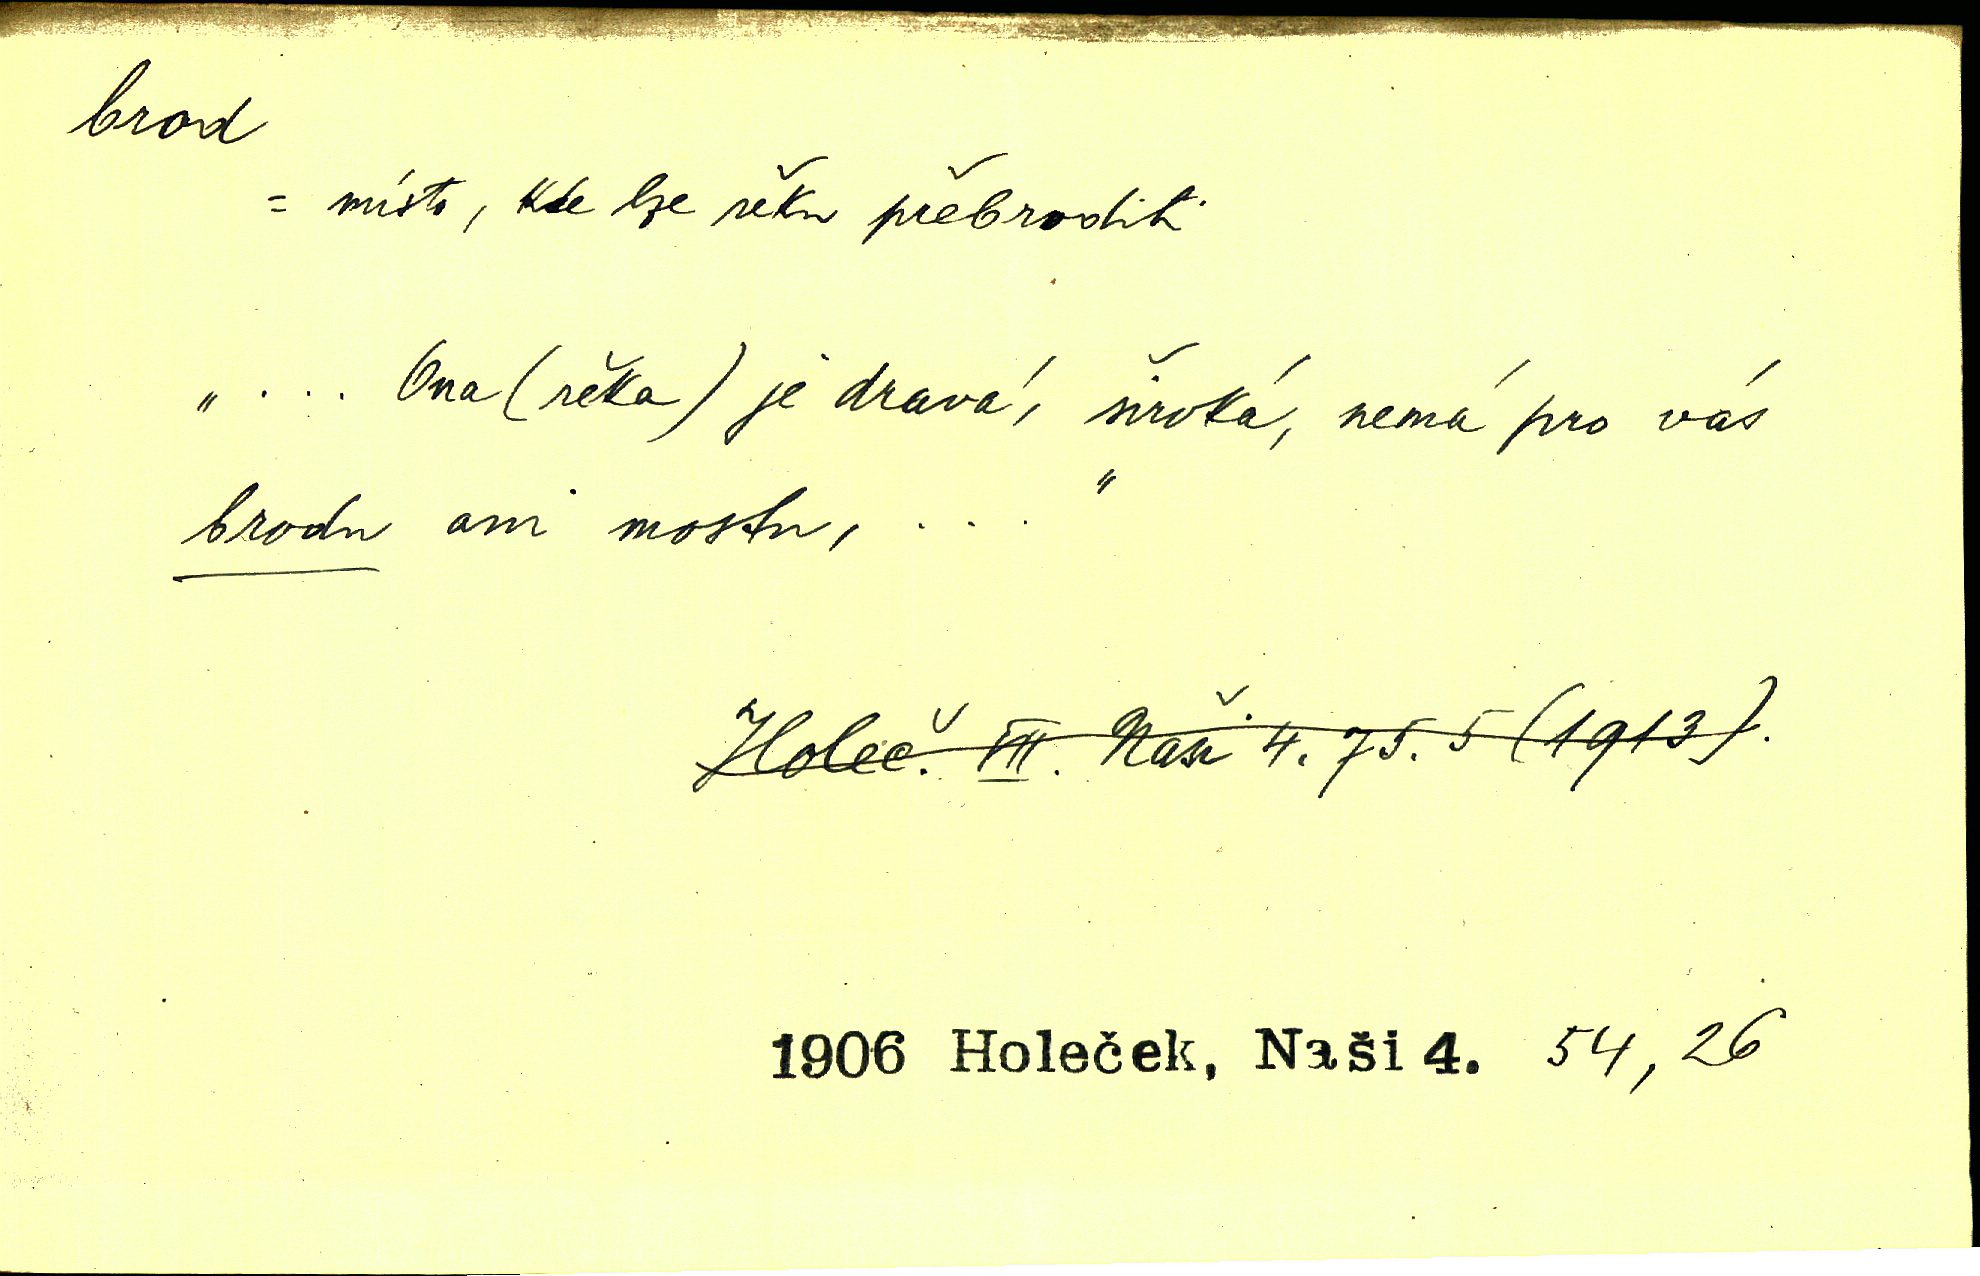 brod
= místo, kde lze řeku přebroditi
„ . . . Ona (řeka) je dravá, široká, nemá pro vás
brodu ani mostu, . . . "
Holeč. VII. Naši 4. 75. 5 (1913).
1906 Holeček, Naši 4. 54, 26